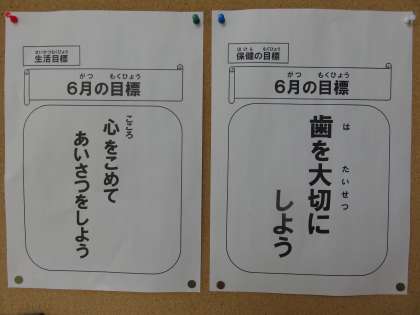 せいかつもくひょう
生活目標
がつ もくひょう
6月の目標
こころ
心をこめて
あいさつをしよう
ほけん もくひょう
保健の目標
がつ もくひょう
6月の目標
は たいせつ
歯を大切に
しよう